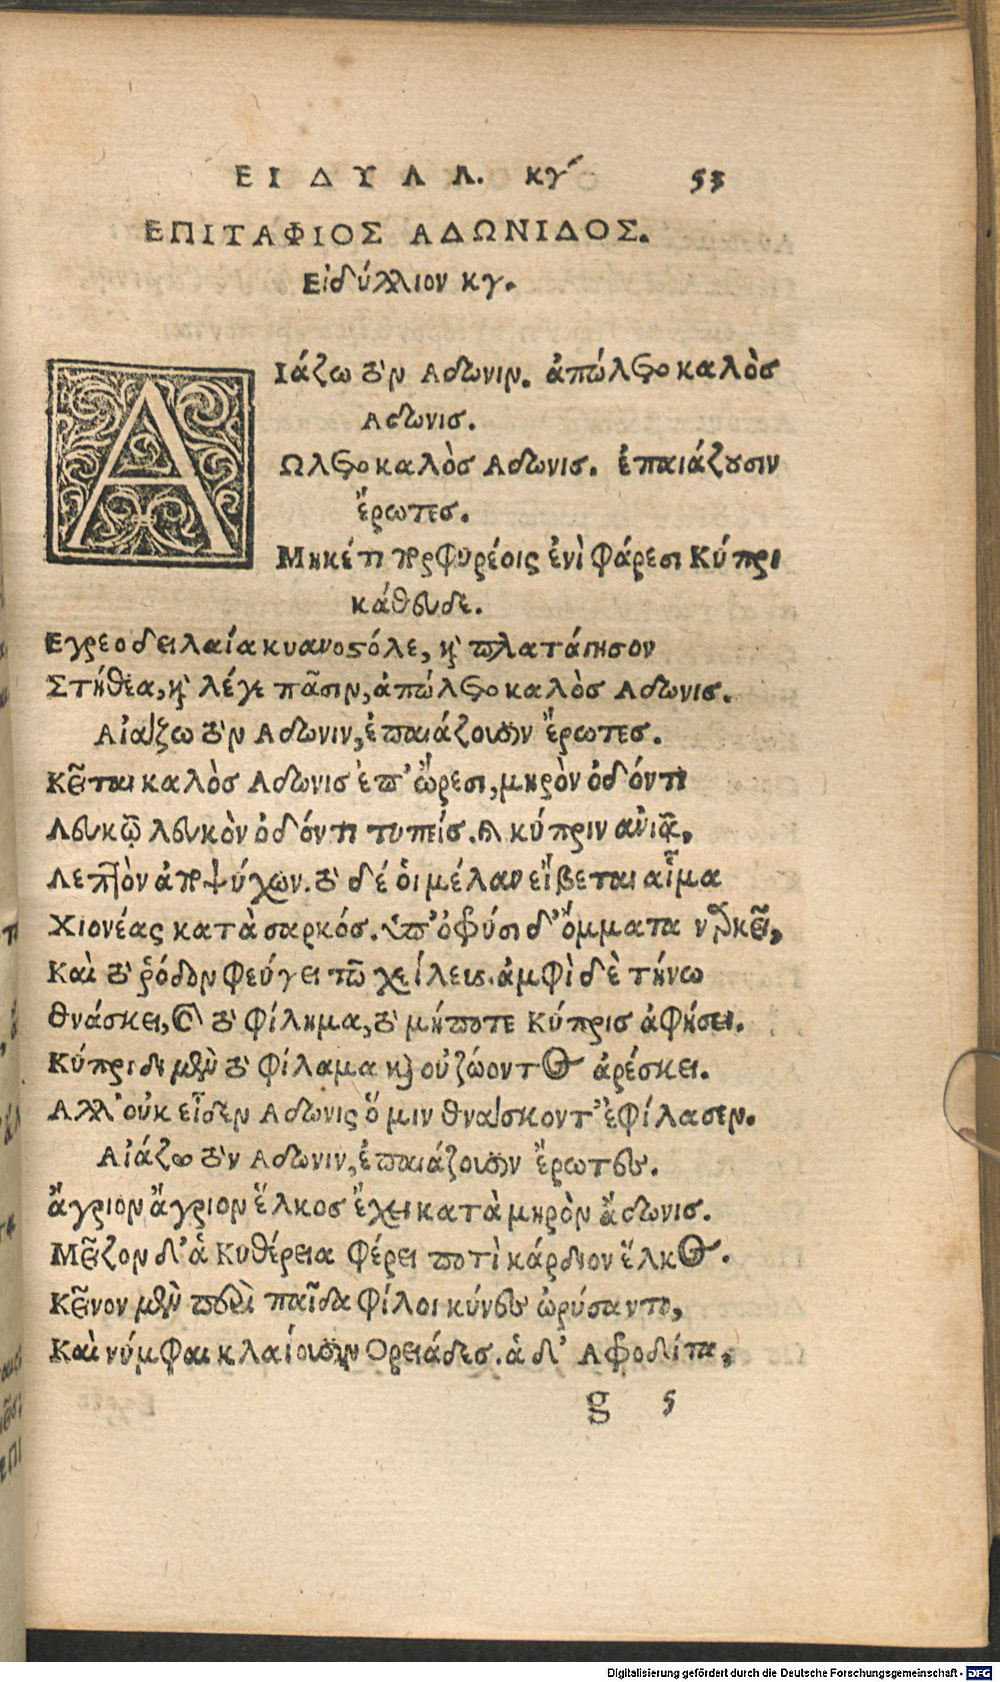 ΕΙΔΥΛΛ. κγ´ 53
ΕΠΙΤΑΦΙΟΣ ΑΔΩΝΙΔΟΣ.
Εἰδύλλιον κγ.
ΑΙάζω τὸν Αδωνιν. ἀπώλετο καλὸς
Αδωνις.
Ωλετο καλὸς Αδωνις. ἐπαιάζουσιν
ἔρωτες.
Μηκέτι πορφυρέοις ἐνὶ φάρεσι Κύπρι
κάθευδε.
Εγρεο δειλαία κυανοστόλε, καὶ πλατάγησον
Στήθεα, καὶ λέγε πᾶσιν, ἀπώλετο καλὸς Αδωνις.
Αἰάζω τὸν Αδωνιν, ἐπαιάζουσιν ἔρωτες.
Κεῖται καλὸς Αδωνις ἐπ' ὤρεσι, μηρὸν ὀδόντι
Λευκῷ λευκὸν ὀδόντι τυπείς. καὶ κύπριν ανιᾷ,
Λεπτὸν ἀποψύχων. τὸ δέ ὁι μέλαν εἴβεται αἷμα
Χιονέας κατὰ σαρκός. ὑπ' ὀφρύσι δ' ὄμματα ναρκεῖ,
Καὶ τὸ ῥόδον φεύγει τῶ χείλεος. ἀμφὶ δὲ τήνω
θνάσκει, καὶ τὸ φίλημα, τὸ μήποτε Κύπρις ἀφήσει.
Κύπριδι μὲν τὸ φίλαμα καὶ οὐ ζώοντος ἀρέσκει.
Αλλ' οὐκ εἶδεν Αδωνις ὅ μιν θνάσκοντ' ἐφίλασεν.
Αἰάζω τὸν Αδωνιν, ἐπαιάζουσιν ἔρωτες.
ἄγριον ἄγριον ἕλκος ἔχει κατὰ μηρὸν ἄδωνις.
Μεῖζον δ' ἁ Κυθέρεια φέρει ποτὶ κάρδιον ἕλκος.
Κεῖνον μὲν περὶ παῖδα φίλοι κύνες ὠρύσαντο,
Καὶ νύμφαι κλαίουσιν Ορειάδες. ἁ δ' Αφροδίτα,
g 5
Digitalisierung gefördert durch die Deutsche Forschungsgemeinschaft - DFG